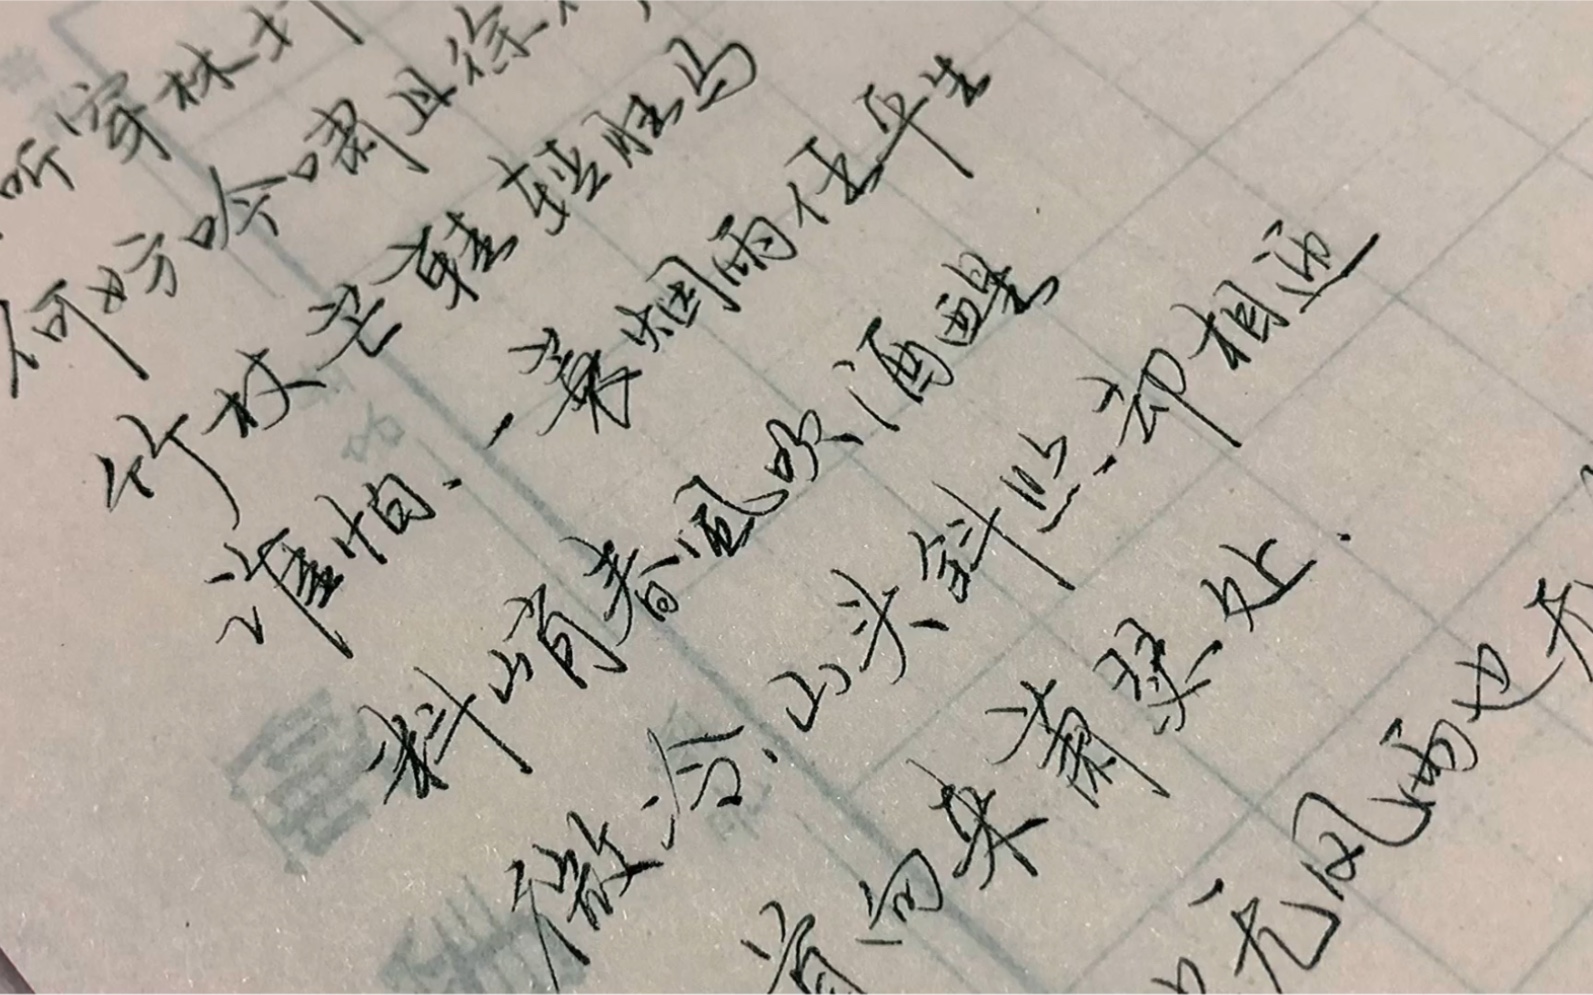 听穿林打
何妨吟啸且徐行
竹杖芒鞋轻胜马
谁怕.一蓑烟雨任平生
料峭春风吹酒醒
微冷.山头斜照.却相迎
首向来萧瑟处.
无风雨也无